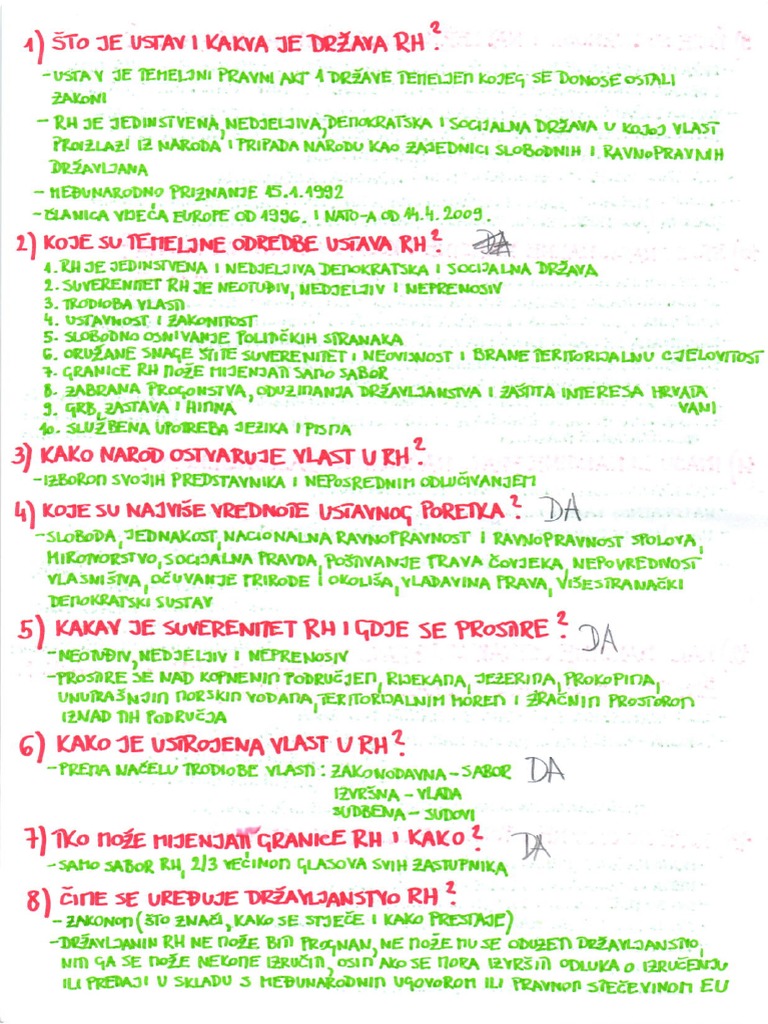 1) ŠTO JE USTAV I KAKVA JE DRŽAVA RH?
- USTAV JE TEMELJNI PRAVNI AKT 1 DRŽAVE TEMELJEM KOJEG SE DONOSE OSTALI
ZAKONI
- RH JE JEDINSTVENA, NEDJELJIVA, DEMOKRATSKA I SOCIJALNA DRŽAVA U KOJOJ VLAST
PROIZLAZI IZ NARODA I PRIPADA NARODU KAO ZAJEDNICI SLOBODNIH I RAVNOPRAVNIH
DRŽAVLJANA
- MEĐUNARODNO PRIZNANJE 15.1.1992
- ČLANICA VIJEĆA EUROPE OD 1996. I NATO-A OD 14.4.2009.
2) KOJE SU TEMELJNE ODREDBE USTAVA RH? DA
1. RH JE JEDINSTVENA I NEDJELJIVA DEMOKRATSKA I SOCIJALNA DRŽAVA
2. SUVERENITET RH JE NEOTUĐIV, NEDJELJIV I NEPRENOSIV
3. TRODIOBA VLASTI
4. USTAVNOST I ZAKONITOST
5. SLOBODNO OSNIVANJE POLITIČKIH STRANAKA
6. ORUŽANE SNAGE ŠTITE SUVERENITET I NEOVISNOST I BRANE TERITORIJALNU CJELOVITOST
7. GRANICE RH MOŽE MIJENJATI SAMO SABOR
8. ZABRANA PROGONSTVA, ODUZIMANJA DRŽAVLJANSTVA I ZAŠTITA INTERESA HRVATA
VANI
9. GRB, ZASTAVA I HIMNA
10. SLUŽBENA UPOTREBA JEZIKA I PISMA
3) KAKO NAROD OSTVARUJE VLAST U RH?
- IZBOROM SVOJIH PREDSTAVNIKA I NEPOSREDNIM ODLUČIVANJEM
4) KOJE SU NAJVIŠE VREDNOTE USTAVNOG PORETKA? DA
- SLOBODA, JEDNAKOST, NACIONALNA RAVNOPRAVNOST I RAVNOPRAVNOST SPOLOVA,
MIROTVORSTVO, SOCIJALNA PRAVDA, POŠTIVANJE PRAVA ČOVJEKA, NEPOVREDNOST
VLASNIŠTVA, OČUVANJE PRIRODE I OKOLIŠA, VLADAVINA PRAVA, VIŠESTRANAČKI
DEMOKRATSKI SUSTAV
5) KAKAV JE SUVERENITET RH I GDJE SE PROSTIRE? DA
- NEOTUĐIV, NEDJELJIV I NEPRENOSIV
- PROSTIRE SE NAD KOPNENIM PODRUČJEM, RIJEKAMA, JEZERIMA, PROKOPIMA,
UNUTRAŠNJIM MORSKIM VODAMA, TERITORIJALNIM MOREM I ZRAČNIM PROSTOROM
IZNAD TIH PODRUČJA
6) KAKO JE USTROJENA VLAST U RH?
- PREMA NAČELU TRODIOBE VLASTI: ZAKONODAVNA – SABOR DA
IZVRŠNA – VLADA
SUDBENA – SUDOVI
7) TKO MOŽE MIJENJATI GRANICE RH I KAKO? DA
- SAMO SABOR RH, 2/3 VEĆINOM GLASOVA SVIH ZASTUPNIKA
8) ČIME SE UREĐUJE DRŽAVLJANSTVO RH?
- ZAKONOM (ŠTO ZNAČI, KAKO SE STJEČE I KAKO PRESTAJE)
- DRŽAVLJANIN RH NE MOŽE BITI PROGNAN, NE MOŽE MU SE ODUZETI DRŽAVLJANSTVO,
NITI GA SE MOŽE NEKOME IZRUČITI, OSIM AKO SE MORA IZVRŠITI ODLUKA O IZRUČENJU
ILI PREDAJI U SKLADU S MEĐUNARODNIM UGOVOROM ILI PRAVNOM STEČEVINOM EU